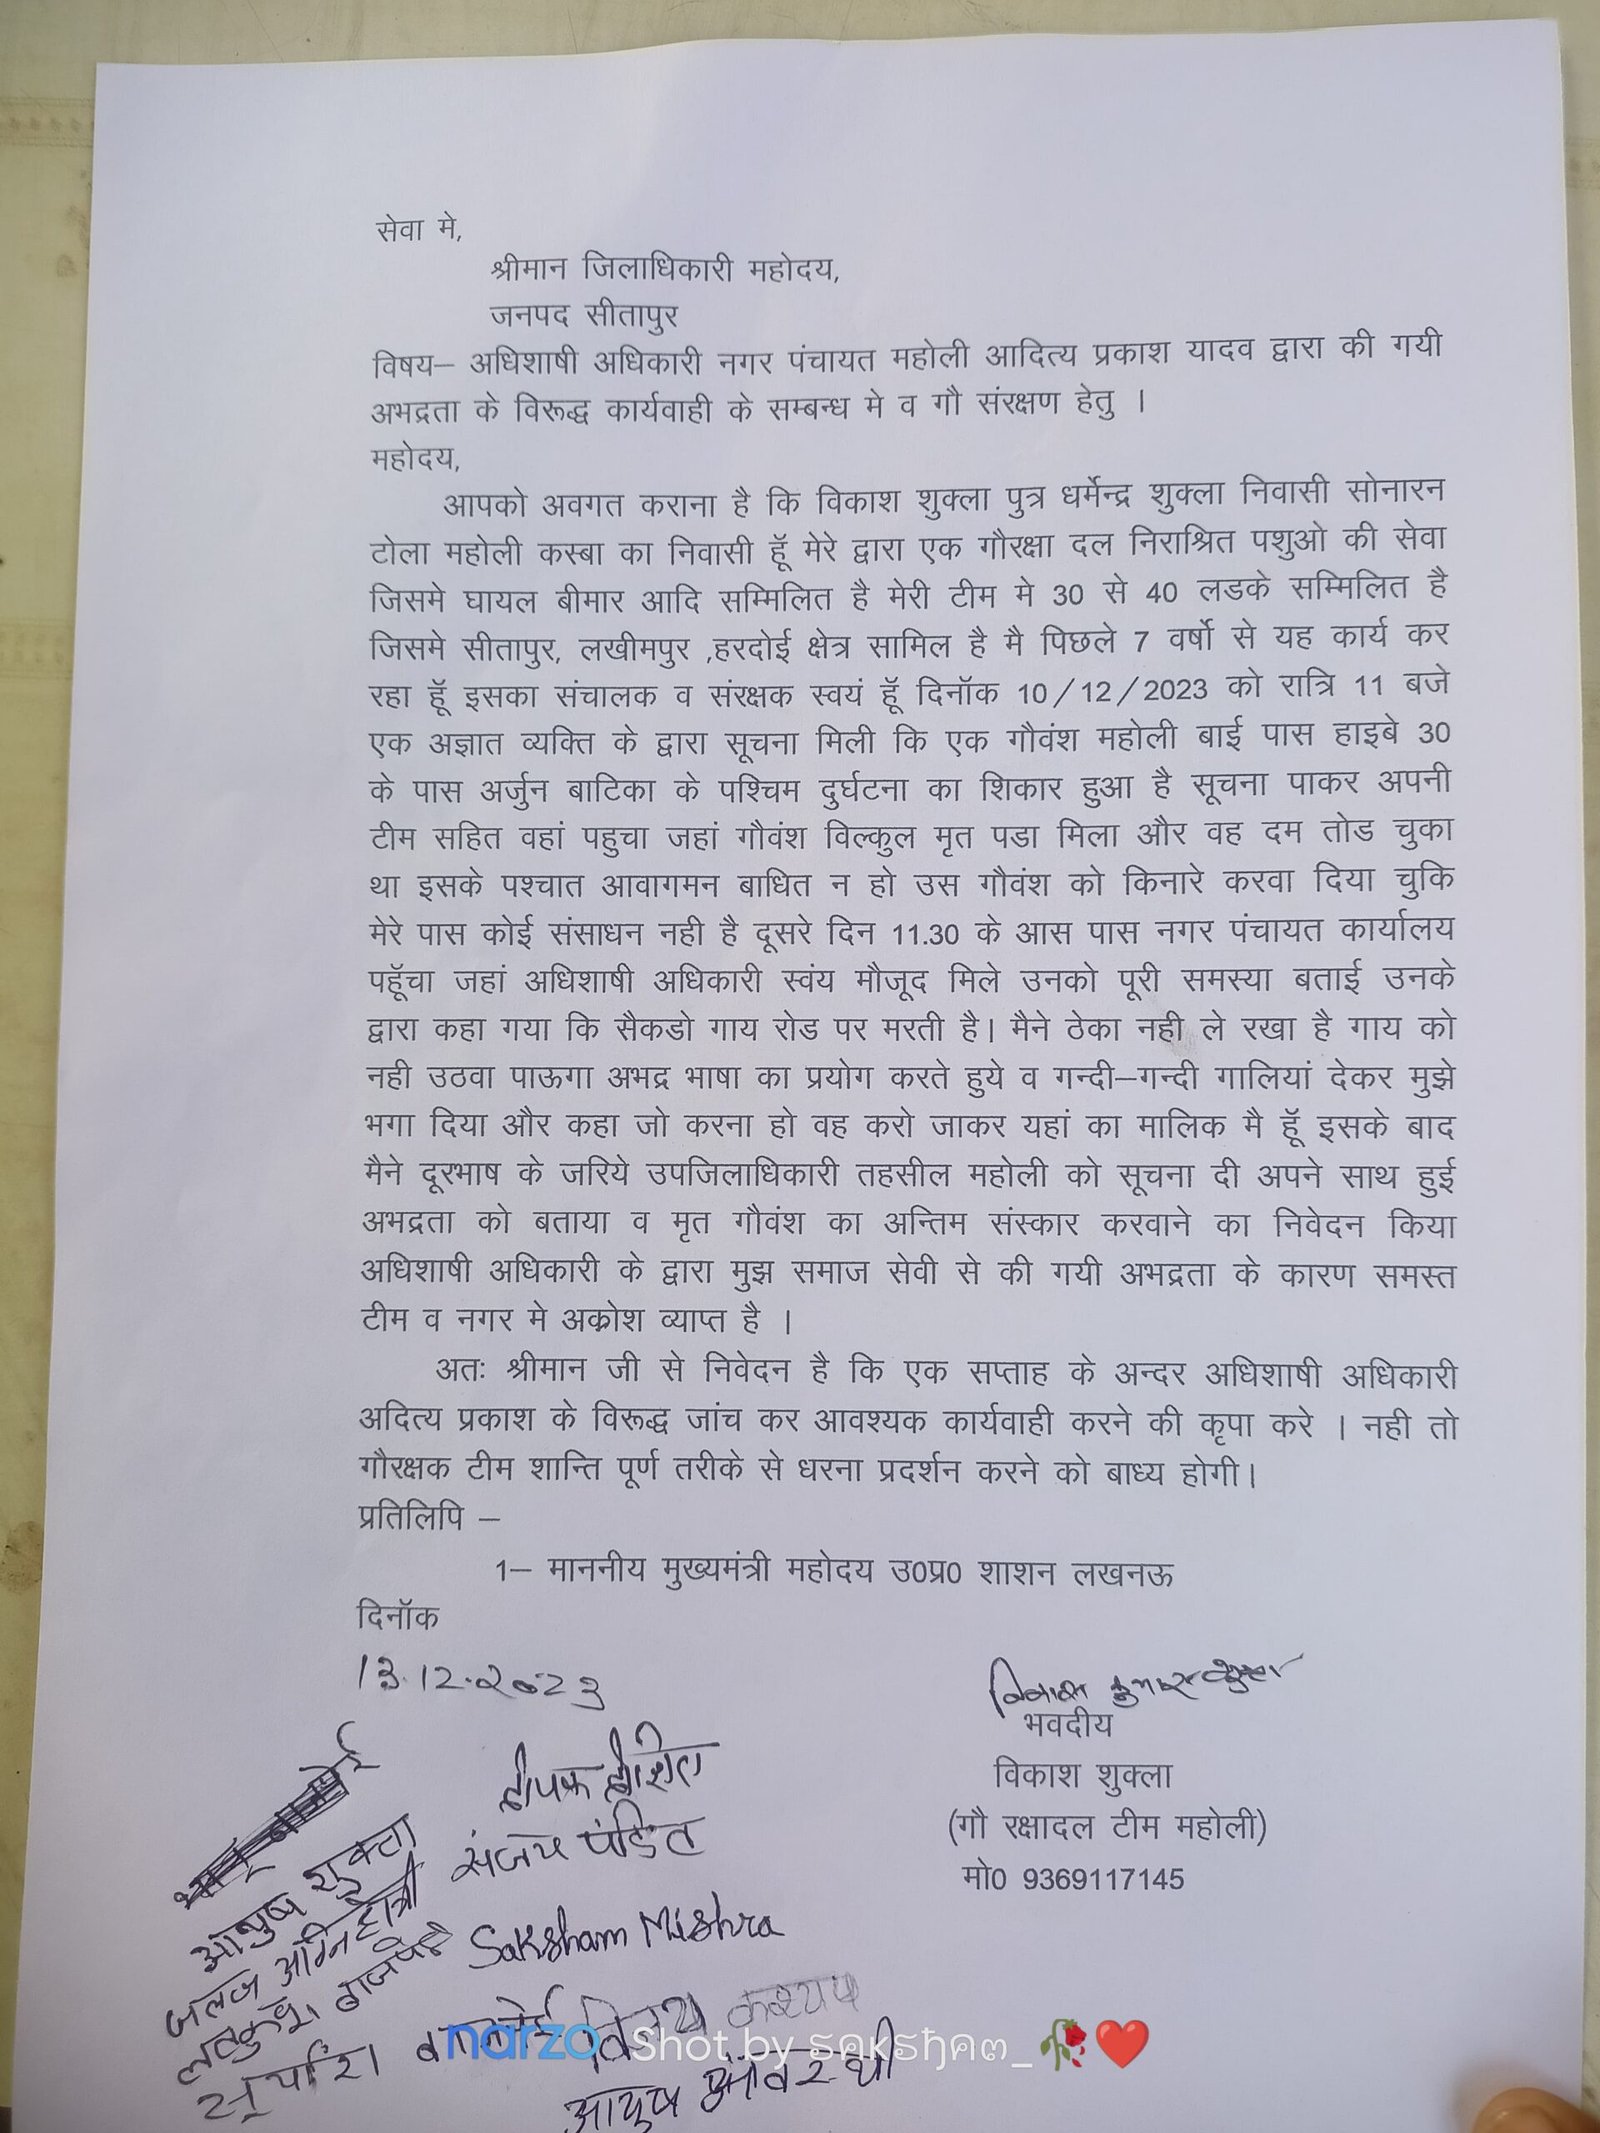 सेवा मे,
श्रीमान जिलाधिकारी महोदय,
जनपद सीतापुर
विषय– अधिशाषी अधिकारी नगर पंचायत महोली आदित्य प्रकाश यादव द्वारा की गयी
अभद्रता के विरूद्ध कार्यवाही के सम्बन्ध मे व गौ संरक्षण हेतु ।
महोदय,
आपको अवगत कराना है कि विकाश शुक्ला पुत्र धर्मेन्द्र शुक्ला निवासी सोनारन
टोला महोली कस्बा का निवासी हूॅ मेरे द्वारा एक गौरक्षा दल निराश्रित पशुओ की सेवा
जिसमे घायल बीमार आदि सम्मिलित है मेरी टीम मे 30 से 40 लडके सम्मिलित है
जिसमे सीतापुर, लखीमपुर ,हरदोई क्षेत्र सामिल है मै पिछले 7 वर्षो से यह कार्य कर
रहा हूॅ इसका संचालक व संरक्षक स्वयं हूॅ दिनॉक 10/12/2023 को रात्रि 11 बजे
एक अज्ञात व्यक्ति के द्वारा सूचना मिली कि एक गौवंश महोली बाई पास हाइबे 30
के पास अर्जुन बाटिका के पश्चिम दुर्घटना का शिकार हुआ है सूचना पाकर अपनी
टीम सहित वहां पहुचा जहां गौवंश विल्कुल मृत पडा मिला और वह दम तोड चुका
था इसके पश्चात आवागमन बाधित न हो उस गौवंश को किनारे करवा दिया चुकि
मेरे पास कोई संसाधन नही है दूसरे दिन 11.30 के आस पास नगर पंचायत कार्यालय
पहूॅचा जहां अधिशाषी अधिकारी स्वंय मौजूद मिले उनको पूरी समस्या बताई उनके
द्वारा कहा गया कि सैकडो गाय रोड पर मरती है। मैने ठेका नही ले रखा है गाय को
नही उठवा पाऊगा अभद्र भाषा का प्रयोग करते हुये व गन्दी–गन्दी गालियां देकर मुझे
भगा दिया और कहा जो करना हो वह करो जाकर यहां का मालिक मै हूॅ इसके बाद
मैने दूरभाष के जरिये उपजिलाधिकारी तहसील महोली को सूचना दी अपने साथ हुई
अभद्रता को बताया व मृत गौवंश का अन्तिम संस्कार करवाने का निवेदन किया
अधिशाषी अधिकारी के द्वारा मुझ समाज सेवी से की गयी अभद्रता के कारण समस्त
टीम व नगर मे अक्रोश व्याप्त है ।
अतः श्रीमान जी से निवेदन है कि एक सप्ताह के अन्दर अधिशाषी अधिकारी
अदित्य प्रकाश के विरूद्ध जांच कर आवश्यक कार्यवाही करने की कृपा करे । नही तो
गौरक्षक टीम शान्ति पूर्ण तरीके से धरना प्रदर्शन करने को बाध्य होगी।
प्रतिलिपि –
1– माननीय मुख्यमंत्री महोदय उ0प्र0 शाशन लखनऊ
दिनॉक
13.12.2023
विकास कुमार शुक्ला
भवदीय
विकाश शुक्ला
(गौ रक्षादल टीम महोली)
मो0 9369117145
दीपक दीक्षित
संजय पंडित
आयुष शुक्ला
जलज अग्निहोत्री
Saksham Mishra
विजय कश्यप
आयुष अवस्थी
narzo Shot by